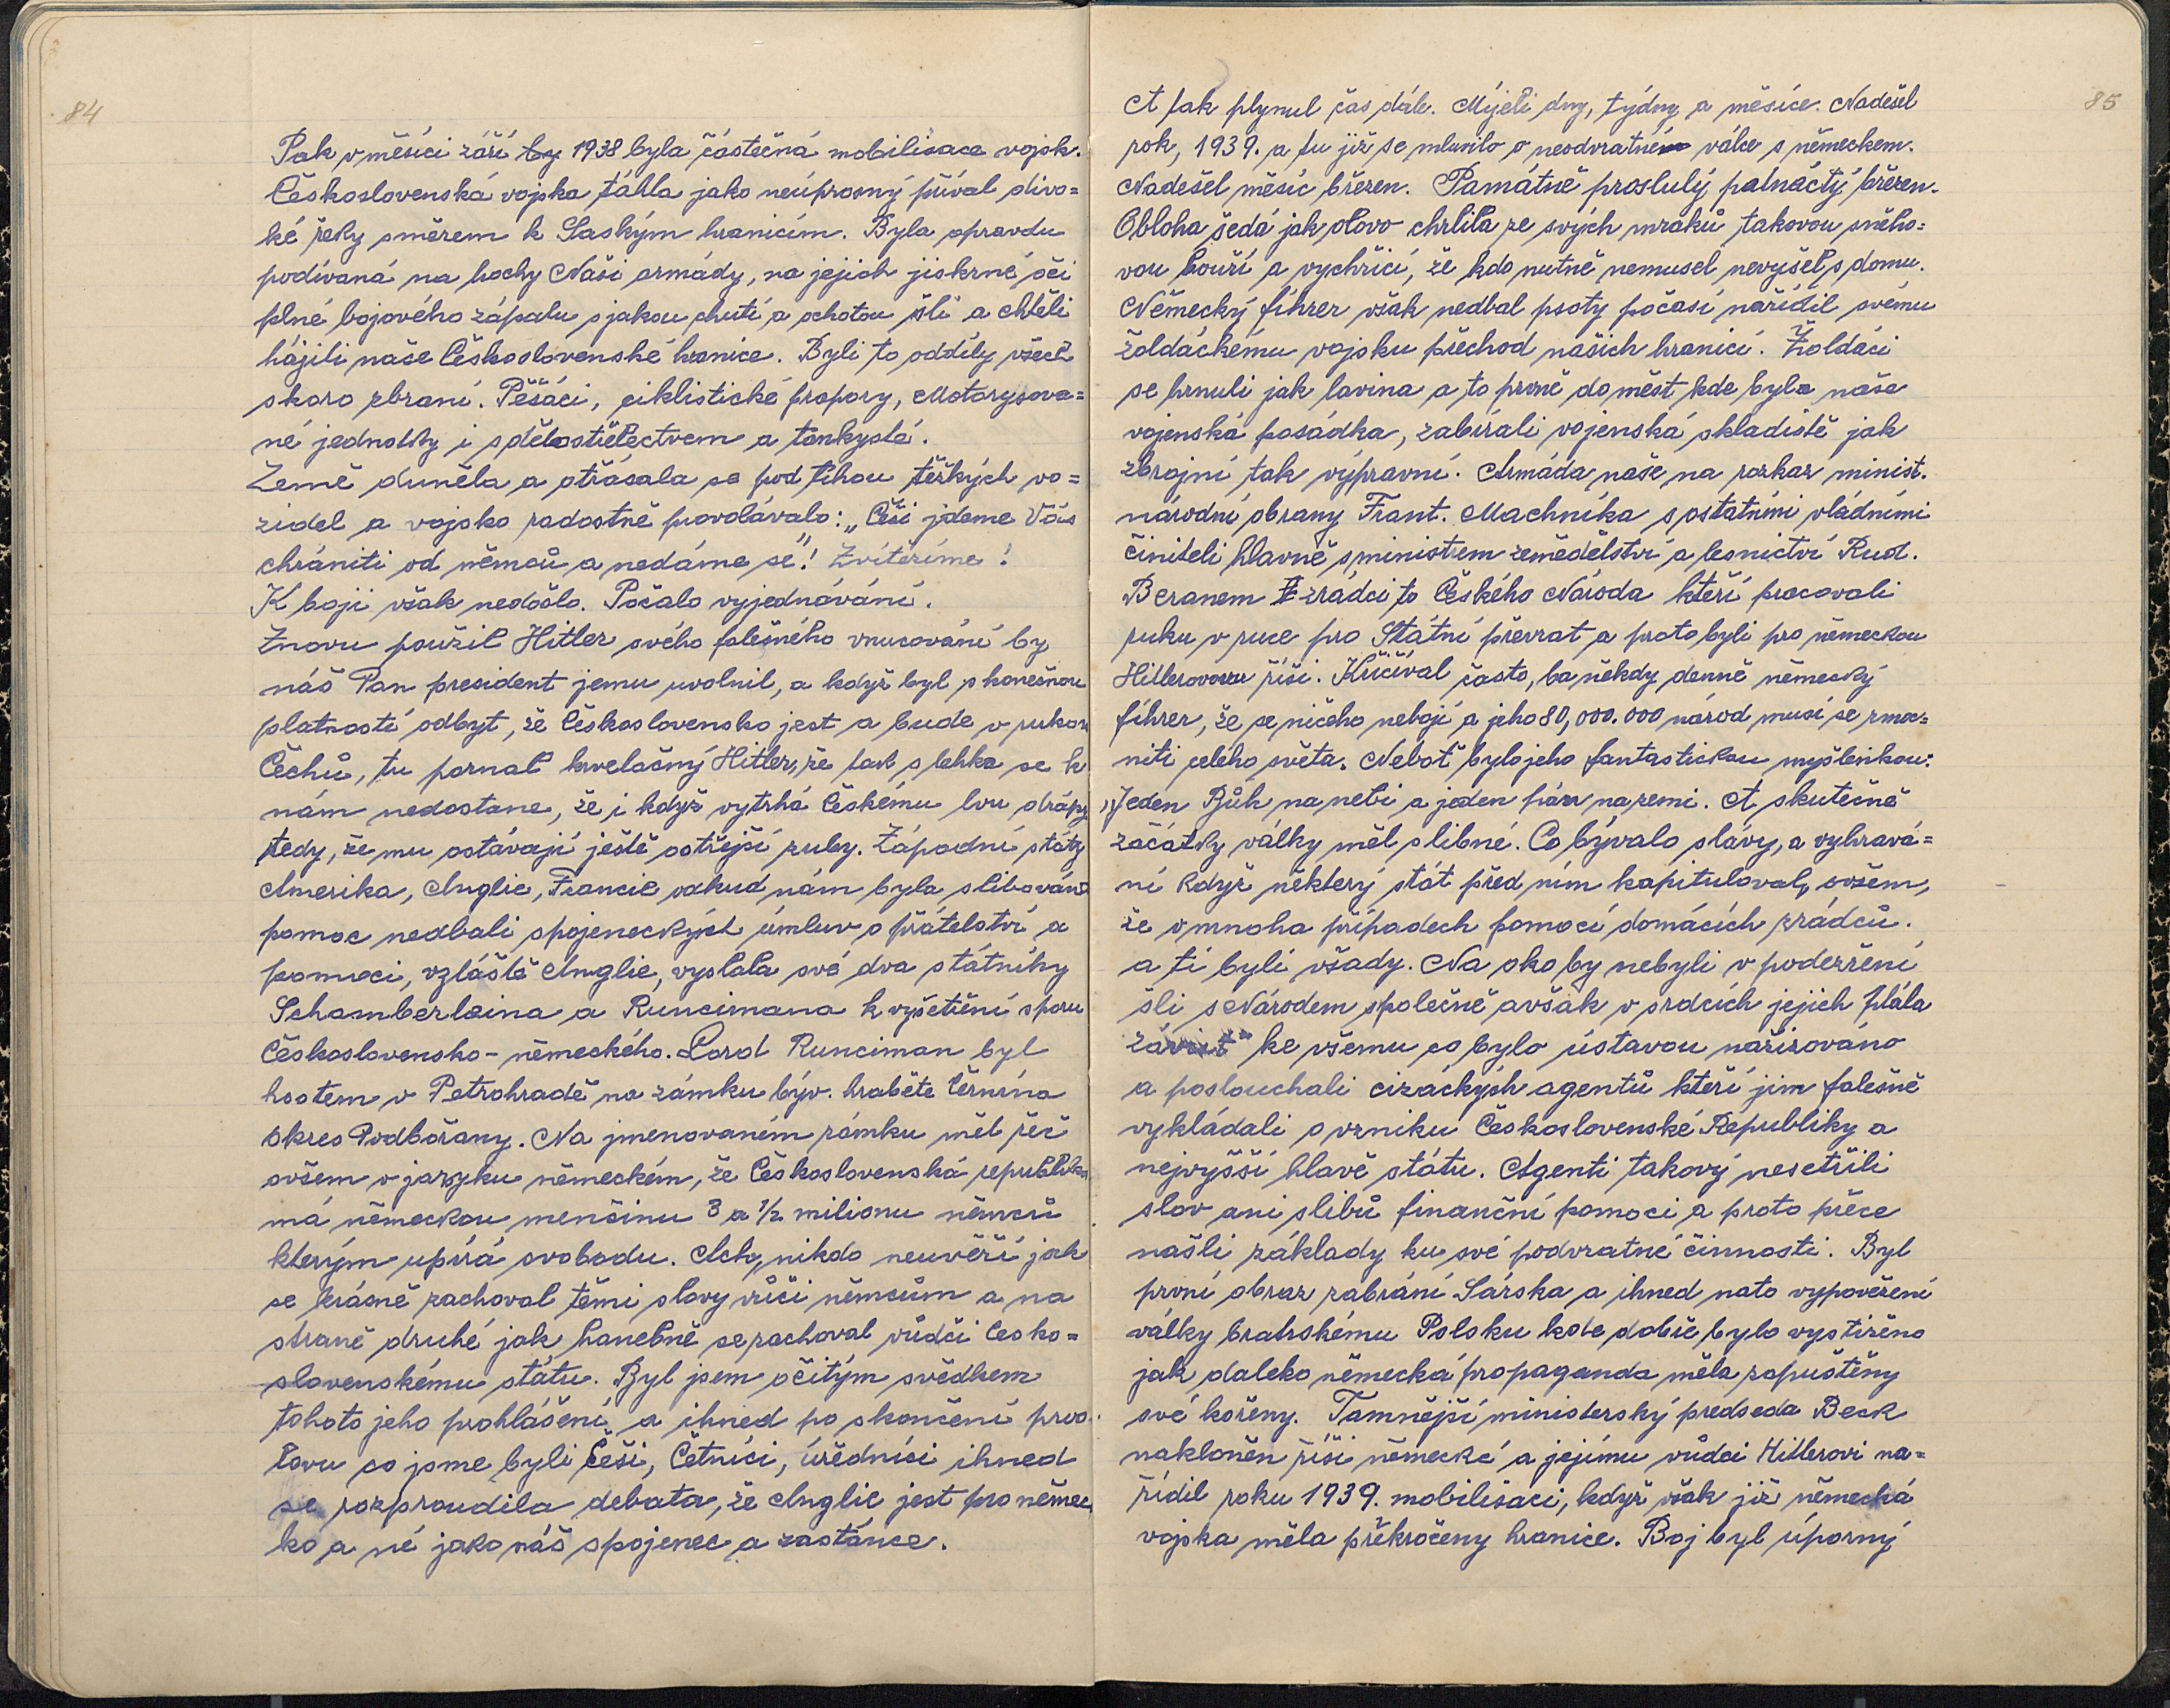 84
Pak v měsíci září by 1938 byla částečná mobilisace vojsk.
Československá vojska táhla jako neúprosný příval divo=
ké řeky směrem k Saským hranicím. Byla opravdu
podívaná na hochy Naši armády, na jejich jiskrné oči
plné bojového zápalu s jakou chutí a ochotou šli a chtěli
hájiti naše Československé hranice. Byli to oddíly všech
skoro zbraní. Pěšáci, ciklistické prapory, Motorysova=
né jednotky i s dělostřelectvem a tanky
Země duněla a otřásala se pod tíhou těžkých vo=
zidel a vojsko radostně provolávalo: „Češi jdeme Vás
chrániti od němců a nedáme se"! Zvítězíme!
K boji však nedošlo. Počalo vyjednávání.
Znovu použil Hitler svého falešného vnucování by
náš Pan president jemu uvolnil, a když byl s konečnou
platností odbyt, že Československo jest a bude v rukou
Čechů, tu poznal krvelačný Hitler, že tak s lehka se k
nám nedostane, že i když vytrhá Českému lvu drápy
tedy, že mu ostávají ještě ostřejší zuby. Západní státy
Amerika, Anglie, Francie odkud nám byla slibována
pomoc nedbali spojeneckých úmluv o přátelství a
pomoci, vzláště Anglie, vyslala své dva státníky
Schamberlaina aRuncimana k vyšetření sporu
Československo-německého. Lord Runciman byl
hostem v Petrohradě na zámku býv. hraběte Černína
okres Podbořany. Na jmenovaném zámku měl řeč
ovšem v jazyku německém, že Československá republika
má německou menšinu 3 a 1/2 milionu němců
kterým upírá svobodu. Ach, nikdo neuvěří jak
se krásně zachoval těmi slovy vůči němcům a na
straně druhé jak hanebně se zachoval vůdči Česko=
slovenskému státu. Byl jsem očitým svědkem
tohoto jeho prohlášení a ihned po skončení pros.
lovu co jsme byli Češi, Četníci, úředníci ihned
se rozproudila debata, že Anglie jest pro němec
ko a né jako náš spojenec a zastánce.
85
A tak plynul čas dále. Míjeli dny, týdny a měsíce. Nadešel
rok, 1939. a tu již se mluvilo o neodvratné válce s německem.
Nadešel měsíc březen. Památně proslulý patnáctý březen.
Obloha šedá jak olovo chrlila ze svých mraků takovou sněho=
vou bouři a vychřici, že kdo nutně nemusel nevyšel z domu.
Německý fíhrer však nedbal psoty počasí nařídil svému
žoldáckému vojsku přechod našich hranicí. Žoldáci
se hrnuli jak lavina a to prvně do měst kde byla naše
vojenská posádka, zabírali vojenská skladiště jak
zbrojní tak výpravní. Armáda naše na rozkaz minist.
národní obrany Frant. Machníka s ostatními vládními
činiteli hlavně s ministrem zemědělství a lesnictví Rud.
Beranem zrádci to Českého Národa kteří pracovali
ruku v ruce pro Státní převrat a proto byli pro německou
Hitlerovou říši. Křičíval často, ba někdy denně německý
fíhrer, že se ničeho nebojí a jeho 80,000.000 národ musí se zmoc=
niti celého světa. Neboť bylo jeho fantastickou myšlenkou:
„Jeden Bůh na nebi a jeden pán na zemi. A skutečně
začátky války měl slibné. Co bývalo slávy, a vyhrává=
ní když některý stát před ním kapituloval, ovšem,
že v mnoha případech pomocí domácích zrádců.
a ti byli všady. Na oko by nebyli v podezření
šli s Národem společně avšak v srdcích jejich plála
závist ke všemu co bylo ústavou nařizováno
a poslouchali cizáckých agentů kteří jim falešně
vykládali o vzniku Československé Republiky a
nejvyšší hlavě státu. Agenti takový nešetřili
slov ani slibů finanční pomoci a proto přece
našli základy ku své podvratné činnosti. Byl
první obraz zabrání Sárska a ihned nato vypověření
války bratrskému Polsku kde dobře bylo vystiženo
jak daleko německá propaganda měla zapuštěny
své kořeny. Tamnější ministerský předseda Beck
nakloněn říši německé a jejímu vůdci Hitlerovi na=
řídil roku 1939. mobilisaci, když však již německá
vojska měla překročeny hranice. Boj byl úporný